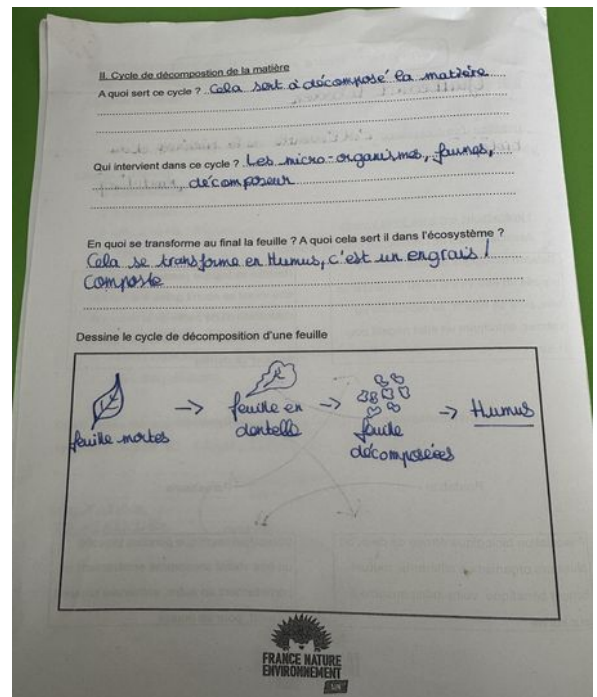 II. Cycle de décompostion de la matière
A quoi sert ce cycle ? Cela sert à décomposé la matière
Qui intervient dans ce cycle ? Les micro-organismes, faunes,
décomposeur
En quoi se transforme au final la feuille ? A quoi cela sert il dans l'écosystème ?
Cela se transforme en Humus, c'est un engrais /
composte
Dessine le cycle de décomposition d'une feuille
feuille mortes -> feuille en dentelle -> feuille décomposées -> Humus
FRANCE NATURE
ENVIRONNEMENT